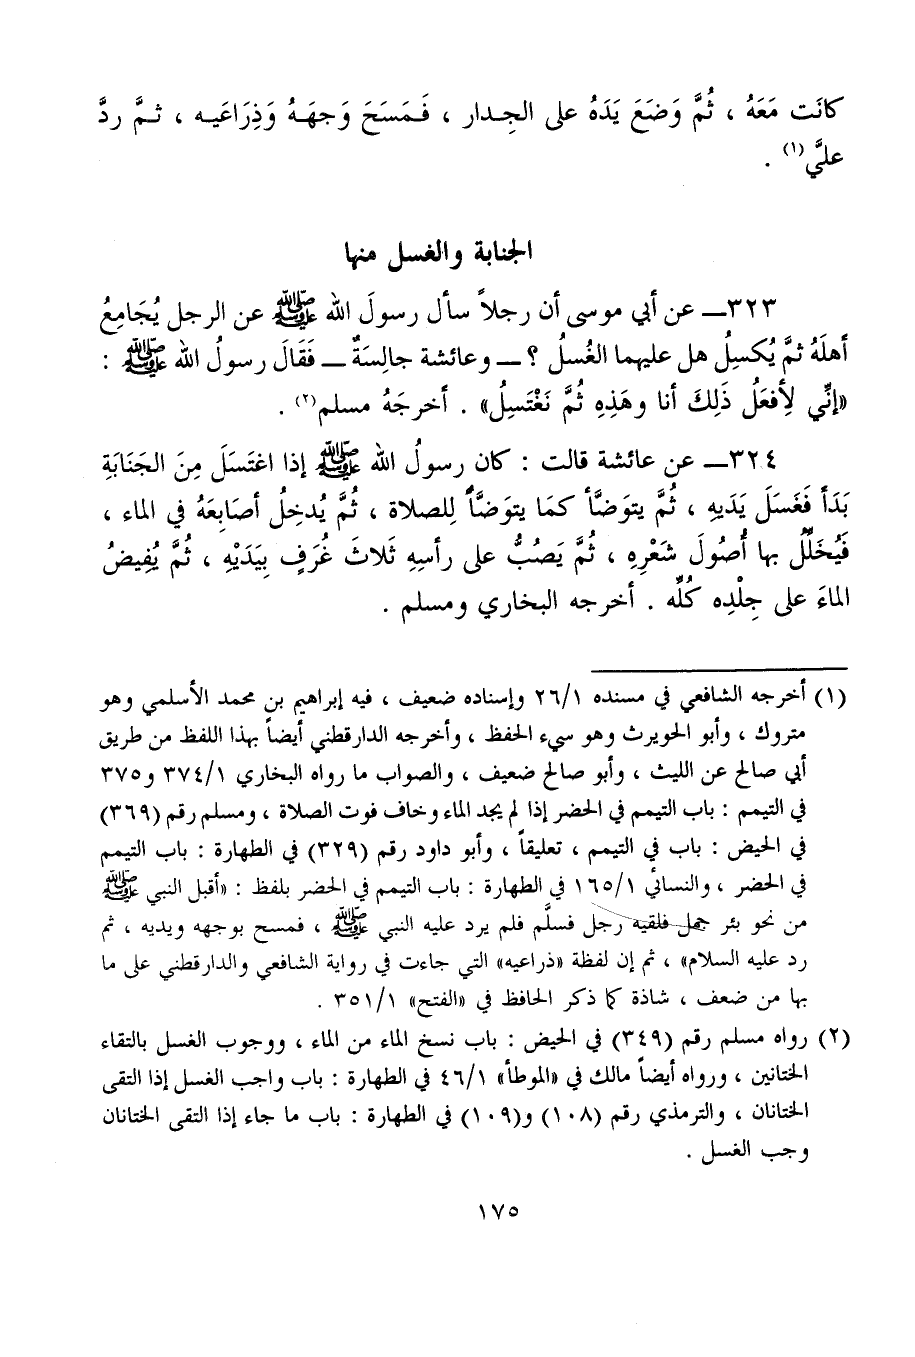 كانَت مَعَهُ ، ثُمَّ وَضَعَ يَدَهُ على الجِدار ، فَمَسَحَ وَجهَهُ وَذِرَاعَيه ، ثمَّ ردَّ
عليَّ(١) .
الجنابة والغسل منها
٣٢٣ــ عن أبي موسى أن رجلاً سأل رسولَ الله ﷺ عن الرجل يُجَامِعُ
أهلَهُ ثمَّ يُكسِلُ هل عليهما الغُسلُ ؟ ــ وعائشة جالِسَةٌ ــ فَقَالَ رسولُ الله ﷺ :
«إنِّي لِأفعَلُ ذَلِكَ أنا وهَذِهِ ثُمَّ نَغْتَسِلُ» . أخرجَهُ مسلم(٢) .
٣٢٤ــ عن عائشة قالت : كان رسولُ الله ﷺ إذا اغتَسَلَ مِنَ الجَنَابَةِ
بَدَأ فَغَسَلَ يَدَيهِ ، ثُمَّ يتوَضَّأ كمَا يتوَضَّأُ لِلصلاة ، ثُمَّ يُدخِلُ أصَابِعَهُ في الماء ،
فَيُخَلِّلُ بها أُصُولَ شَعْرِهِ ، ثُمَّ يَصُبُّ على رأسِهِ ثَلاثَ غُرَفٍ بِيَدَيْهِ ، ثُمَّ يُفِيضُ
الماءَ على جِلْدِه كُلِّه . أخرجه البخاري ومسلم .
(١) أخرجه الشافعي في مسنده ٢٦/١ وإسناده ضعيف ، فيه إبراهيم بن محمد الأسلمي وهو
متروك ، وأبو الحويرث وهو سيء الحفظ ، وأخرجه الدارقطني أيضاً بهذا اللفظ من طريق
أبي صالح عن الليث ، وأبو صالح ضعيف ، والصواب ما رواه البخاري ٣٧٤/١ و٣٧٥
في التيمم : باب التيمم في الحضر إذا لم يجد الماء وخاف فوت الصلاة ، ومسلم رقم (٣٦٩)
في الحيض : باب في التيمم ، تعليقاً ، وأبو داود رقم (٣٢٩) في الطهارة : باب التيمم
في الحضر ، والنسائي ١٦٥/١ في الطهارة : باب التيمم في الحضر بلفظ : «أقبل النبي ﷺ
من نحو بئر جمل فلقيه رجل فسلَّم فلم يرد عليه النبي ﷺ ، فمسح بوجهه ويديه ، ثم
رد عليه السلام» ، ثم إن لفظة «ذراعيه» التي جاءت في رواية الشافعي والدارقطني على ما
بها من ضعف ، شاذة كما ذكر الحافظ في «الفتح» ٣٥١/١ .
(٢) رواه مسلم رقم (٣٤٩) في الحيض : باب نسخ الماء من الماء ، ووجوب الغسل بالتقاء
الختانين ، ورواه أيضاً مالك في «الموطأ» ٤٦/١ في الطهارة : باب واجب الغسل إذا التقى
الختانان ، والترمذي رقم (١٠٨) و(١٠٩) في الطهارة : باب ما جاء إذا التقى الختانان
وجب الغسل .
١٧٥